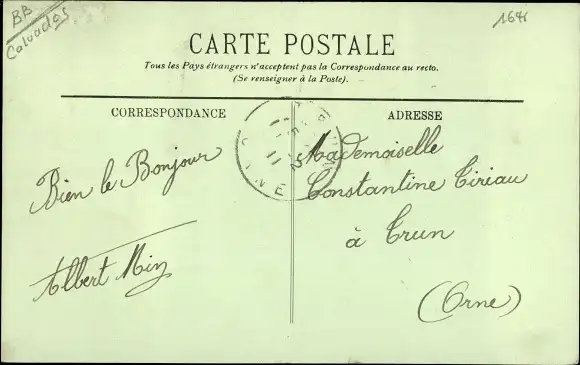 BB
Calvados
1648
CARTE POSTALE
Tous les Pays étrangers n'acceptent pas la Correspondance au recto.
(Se renseigner à la Poste).
CORRESPONDANCE
Bien le Bonjour
Albert
ADRESSE
Mademoiselle
Constantine Ciriau
à Trun
(Orne)